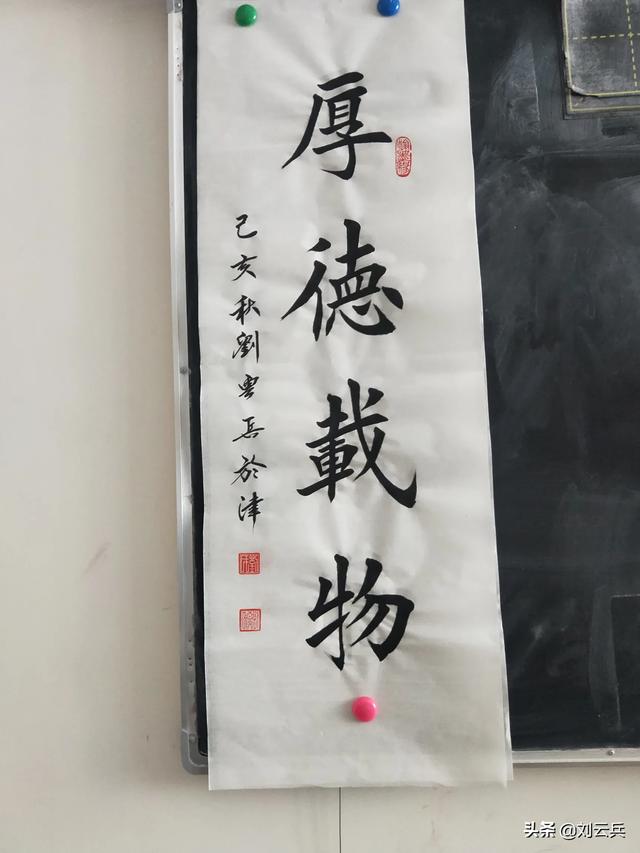 厚德載物
己亥秋劉雲兵於津
头条 @刘云兵